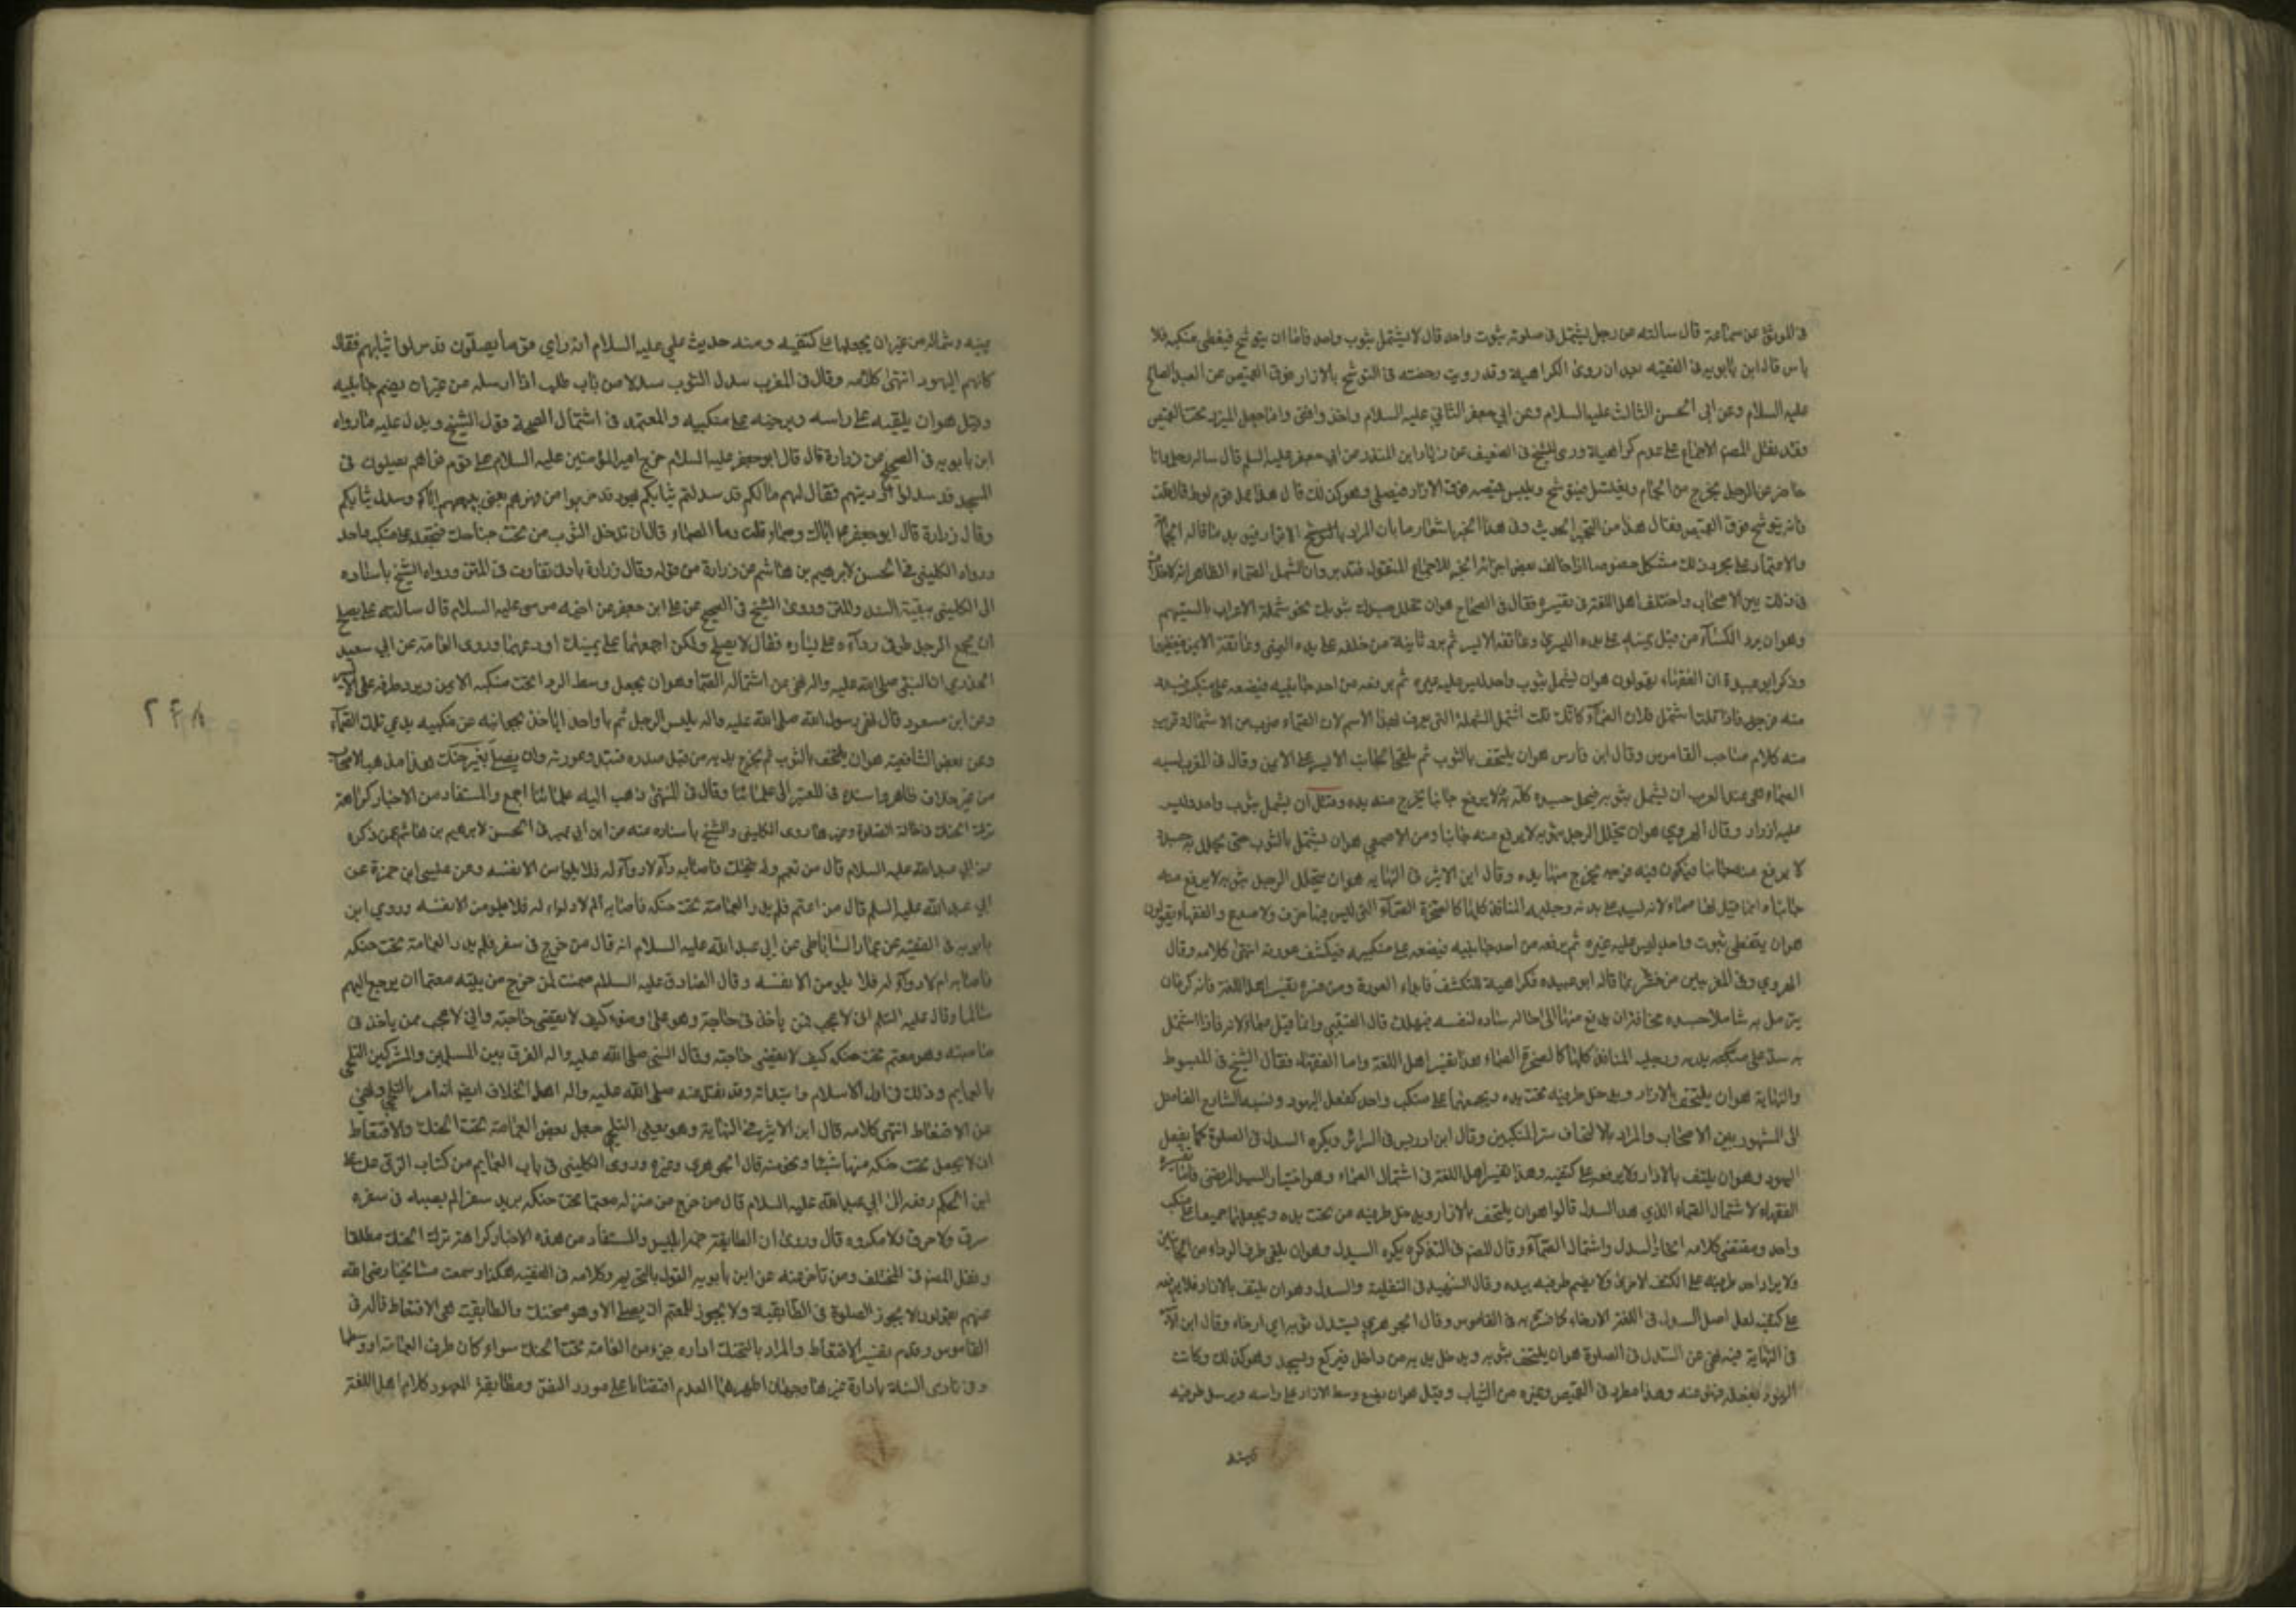 في الموثق عن سماعة قال سالته عن رجل يشتمل في صلوته بثوب واحد قال لا يشتمل بثوب واحد فاما ان يتوشح فيغطي منكبيه فلا
باس قال ابن بابويه في الفقيه بعد ان روى الكراهية وقد رويت رخصته في التوشح بالازار فوق القميص عن العبد الصالح
عليه السلام وعن ابي الحسن الثالث عليه السلام وعن ابي جعفر الثاني عليه السلام واخذ وافتى واما جعل الميزر تحت القميص
فقد نقل المصنف الاجماع على عدم كراهية وروى الشيخ في الضعيف عن زياد ابن المنذر عن ابي جعفر عليه السلم قال ساله رجل وانا
حاضر عن الرجل يخرج من الحمام ويغتسل فيتوشح ويلبس قميصه فوق الازار فيصلي وهو كذلك قال هذا عمل قوم لوط قال قلت
فانه يتوشح فوق القميص فقال هذا من التجبر الحديث وفي هذا الخبر اشعار ما بان المراد بالتوشح الاتزار
والاعتماد على مجرد ذلك مشكل خصوصا اذا خالف بعض اجزاء الخبر للاجماع المنقول فتدبر واما اشتمال الصماء الظاهر انه لا خلاف
في ذلك بين الاصحاب واختلف اهل اللغة في تفسيره فقال في الصحاح هو ان تجلل جسدك بثوبك نحو شملة الاعراب باكسيتهم
وهو ان يرد الكساء من قبل يمينه على يده اليسرى وعاتقه الايسر ثم يرد ثانية من خلفه على يده اليمنى وعاتقه الايمن فيغطيهما
وذكر ابو عبيدة ان الفقهاء يقولون هو ان يشتمل بثوب واحد ليس عليه غيره ثم يرفعه من احد جانبيه فيضعه على منكبه فيبدو
منه فرجه فاذا قلت اشتمل فلان الصماء كانك قلت اشتمل الشملة التي تعرف بهذا الاسم لان الصماء ضرب من الاشتمال وقريب
منه كلام صاحب القاموس وقال ابن فارس هو ان يلتحف بالثوب ثم يلقي الجانب الايسر على الايمن وقال في المغرب لبسة
الصماء هي عند العرب ان يشتمل بثوبه فيجلل جسده كله به ولا يرفع جانبا يخرج منه يده وقيل ان يشتمل بثوب واحد وليس
عليه ازار وقال الهروي هو ان يتجلل الرجل بثوبه لا يرفع منه جانبا وعن الاصمعي هو ان يشتمل بالثوب حتى يجلل به جسده
لا يرفع منه جانبا فيكون فيه فرجة يخرج منها يده وقال ابن الاثير في النهاية هو ان يتجلل الرجل بثوبه لا يرفع منه
جانبا وانما قيل لها صماء لانه يسد على بدنه ورجليه المنافذ كلها كالصخرة الصماء التي ليس فيها خرق ولا صدع والفقهاء يقولون
هو ان يتغطى بثوب واحد ليس عليه غيره ثم يرفعه من احد جانبيه فيضعه على منكبيه فيكشف عورته انتهى كلامه وقال
الهروي وفي الغريبين من فسره بما قاله ابو عبيده فكراهية للتكشف فابداء العورة ومن فسره تفسير اهل اللغة فانه كره ان
يتزمل به شاملا جسده مخافة ان يدفع منها الى حالة سادة لنفسه فيهلك قال القتيبي وانما قيل صماء لانه اذا اشتمل
به سد على يديه ورجليه المنافذ كلها كالصخرة الصماء هذا تفسير اهل اللغة واما الفقهاء فقال الشيخ في المبسوط
والنهاية هو ان يلتحف بالازار ويدخل طرفيه تحت يده ويجمعهما على منكب واحد كفعل اليهود ونسبه الشارح الفاضل
الى المشهور بين الاصحاب والمراد بالالتحاف ستر المنكبين وقال ابن ادريس في السرائر ويكره السدل في الصلوة كما يفعل
اليهود وهو ان يلتف بالازار ولا يرفعه على كتفيه وهذا تفسير اهل اللغة في اشتمال الصماء وهو اختيار السيد المرتضى فاما تفسير
الفقهاء لاشتمال الصماء الذي هو السدل قالوا هو ان يلتحف بالازار ويدخل طرفيه من تحت يده ويجعلهما جميعا على منكب
واحد ومقتضى كلامه اتحاد السدل واشتمال الصماء وقال المصنف في التذكره يكره السدل وهو ان يلقي طرف الرداء من الجانبين
ولا يرد احد طرفيه على الكتف الاخرى ولا يضم طرفيه بيده وقال الشهيد في النفلية والسدل وهو ان يلتف بالازار فلا يرفعه
على كتفيه لعل اصل السدل في اللغة الارخاء كما فسره به في القاموس وقال الجوهري سدل ثوبه اي ارخاه وقال ابن الاثير
في النهاية فيه نهي عن السدل في الصلوة هو ان يلتحف بثوبه ويدخل يديه من داخل فيركع ويسجد وهو كذلك وكانت
اليهود تفعله فنهى عنه وهذا مطرد في القميص وغيره من الثياب وقيل هو ان يضع وسط الازار على راسه ويرسل طرفيه
يمينه
يمينه وشماله من غير ان يجعلهما على كتفيه ومنه حديث علي عليه السلام انه راي قوما يصلون قد سدلوا ثيابهم فقال
كانهم اليهود انتهى كلامه وقال في المغرب سدل الثوب سدلا من باب طلب اذا ارسله من غير ان يضم جانبيه
وقيل هو ان يلقيه على راسه ويرخيه على منكبيه والمعتمد في اشتمال الصماء قول الشيخ ويدل عليه ما رواه
ابن بابويه في الصحيح عن زرارة قال قال ابو جعفر عليه السلام خرج امير المؤمنين عليه السلام على قوم فراهم يصلون في
المسجد قد سدلوا ارديتهم فقال لهم مالكم قد سدلتم ثيابكم كانكم يهود قد خرجوا من فهرهم يعني بيعهم اياكم وسدل ثيابكم
وقال زرارة قال ابو جعفر ع اياك والتحاف الصماء قلت وما الصماء قال ان تدخل الثوب من تحت جناحك فتجعله على منكب واحد
ورواه الكليني في الحسن لابرهيم بن هاشم عن زرارة من قوله وقال زرارة بادنى تفاوت في المتن ورواه الشيخ باسناده
الى الكليني ببقية السند والمتن وروى الشيخ في الصحيح عن علي ابن جعفر عن اخيه موسى عليه السلام قال سالته هل يصلح
ان يجمع الرجل طرفي ردائه على يساره فقال لا يصلح ولكن اجمعهما على يمينك او دعهما وروى العامة عن ابي سعيد
الخدري ان النبي صلى الله عليه واله نهى عن اشتمال الصماء وهو ان يجعل وسط الرداء تحت منكبه الايمن ويرد طرفه على الايسر
وعن ابن مسعود قال نهى رسول الله صلى الله عليه واله ان يلبس الرجل ثوبا واحدا ياخذ بجوانبه عن منكبيه يدعى تلك الصماء
وعن بعض الشافعية هو ان يلتحف بالثوب ثم يخرج يديه من قبل صدره فتبدو عورته وان يصلي بغير حنك هذا مذهب الاصحاب
من غير خلاف ظاهر واسنده في المعتبر الى علمائنا وقال في المنتهى ذهب اليه علمائنا اجمع والمستفاد من الاخبار كراهة
ترك الحنك في حالة الصلوة وغيرها روى الكليني والشيخ باسناده عنه عن ابن ابي عمير في الحسن لابرهيم بن هاشم عمن ذكره
عن ابي عبد الله عليه السلام قال من تعمم ولم يتحنك فاصابه داء لا دواء له فلا يلومن الا نفسه وعن عليسى ابن حمزة عن
ابي عبد الله عليه السلم قال من اعتم فلم يدر العمامة تحت حنكه فاصابه الم لا دواء له فلا يلومن الا نفسه وروي ابن
بابويه في الفقيه عن عمار الساباطي عن ابي عبد الله عليه السلام انه قال من خرج في سفر فلم يدر العمامة تحت حنكه
فاصابه الم لا دواء له فلا يلومن الا نفسه وقال الصادق عليه السلام ضمنت لمن خرج من بيته معتما ان يرجع اليهم
سالما وقال عليه السلم اني لاعجب ممن ياخذ في حاجة وهو على وضوء كيف لا تقضى حاجته واني لاعجب ممن ياخذ في
حاجته وهو معتم تحت حنكه كيف لا تقضى حاجته وقال النبي صلى الله عليه واله الفرق بين المسلمين والمشركين التلحي
بالعمايم وذلك في اول الاسلام وابتدائه وقد نقل عنه صلى الله عليه واله اهل الخلاف ايضا انه امر بالتلحي ونهى
عن الاقتعاط انتهى كلامه قال ابن الاثير في النهاية وهو يعني التلحي جعل بعض العمامة تحت الحنك والاقتعاط
ان لا يجعل تحت حنكه منها شيئا ونحو منه قال الجوهري وغيره وروى الكليني في باب العمايم من كتاب الزي عن علي
ابن الحكم رفعه الى ابي عبد الله عليه السلام قال من خرج من منزله معتما تحت حنكه يريد سفرا لم يصبه في سفره
سرق ولا حرق ولا مكروه قال وروى ان الطابقية عمة ابليس والمستفاد من هذه الاخبار كراهة ترك الحنك مطلقا
ونقل المصنف في المختلف ومن تاخر عنه عن ابن بابويه القول بالتحريم وكلامه في الفقيه هكذا وسمعت مشائخنا رضي الله
عنهم يقولون لا يجوز الصلوة في الطابقية ولا يجوز للمعتم ان يصلي الا وهو متحنك والطابقية هي الاقتعاط قاله في
القاموس وتقدم تفسير الاقتعاط والمراد بالتحنك اداره جزء من العمامة تحت الحنك سواء كان طرف العمامة او وسطها
وفي تادى السنة بادارة غيرها وجهان اظهرهما العدم اقتصارا على مورد النص ومطابقة المعهود كلام اهل اللغة
۲۴۸